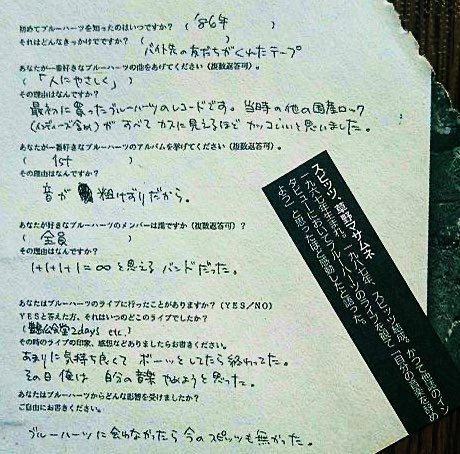 初めてブルーハーツを知ったのはいつですか？（ '86年 ）
それはどんなきっかけでですか？（ ）
バイト先の友だちがくれたテープ
あなたが一番好きなブルーハーツの曲をあげてください（複数返答可）。
（ 「人にやさしく」 ）
その理由はなんですか？
最初に買ったブルーハーツのレコードです。当時の他の国産ロック
（インディーズ含め）が すべて カスに見えるほど カッコいいと思いました。
あなたが一番好きなブルーハーツのアルバムを挙げてください（複数返答可）。
（ 1st ）
その理由はなんですか？
音が 粗けずりだから。
あなたが好きなブルーハーツのメンバーは誰ですか（複数返答可）？
（ 全員 ）
その理由はなんですか？
1+1+1+1=∞と思える バンドだった。
あなたはブルーハーツのライブに行ったことがありますか？（YES／NO）
YESと答えた方、それはいつのどこのライブでしたか？
（ 公会堂2days etc. ）
その時のライブの印象、感想などありましたらお書きください。
あまりに気持ち良くて ボーッとしてたら終わってた。
その日俺は 自分の音楽 やめようと思った。
あなたはブルーハーツからどんな影響を受けましたか？
ご自由にお書きください。
ブルーハーツに会わなかったら今のスピッツも無かった。
スピッツ、草野マサムネ
一九六七年生まれ。一九八七年、スピッツ結成。かつて他誌のイン
タビューにおいてブルーハーツのライブを観て「自分の音楽を辞め
よう」と思ったほど感動したと語った。